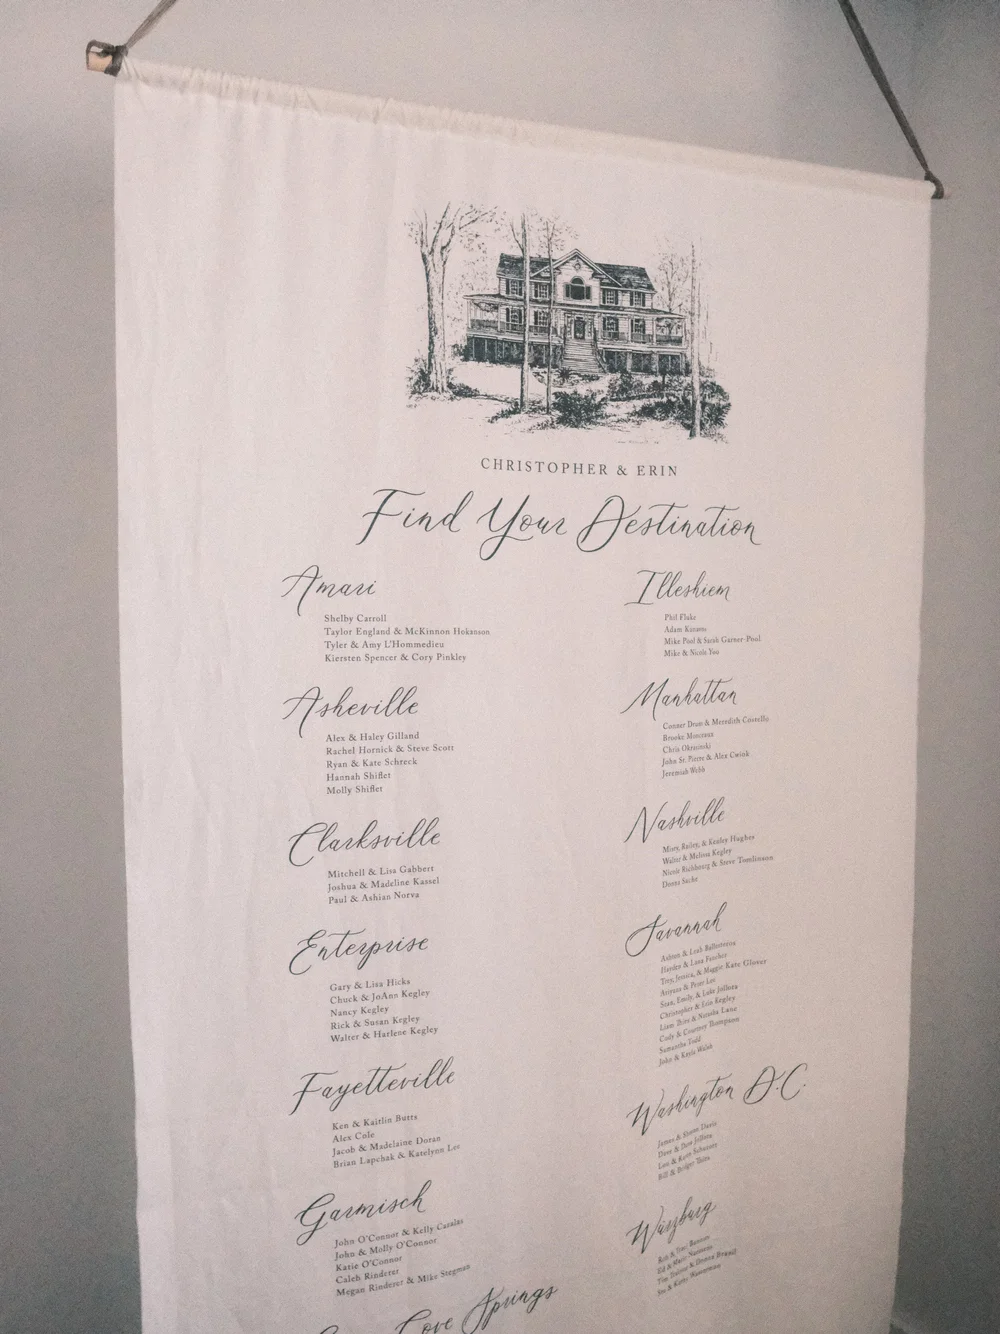 CHRISTOPHER & ERIN
Find Your Destination
Amari
Shelby Carroll
Taylor England & McKinnon Hokanson
Tyler & Amy L'Hommedieu
Kiersten Spencer & Cory Pinkley
Asheville
Alex & Haley Gilland
Rachel Hornick & Steve Scott
Ryan & Kate Schreck
Hannah Shiflet
Molly Shiflet
Clarksville
Mitchell & Lisa Gabbert
Joshua & Madeline Kassel
Paul & Ashian Norva
Enterprise
Gary & Lisa Hicks
Chuck & JoAnn Kegley
Nancy Kegley
Rick & Susan Kegley
Walter & Harlene Kegley
Fayetteville
Ken & Kaitlin Butts
Alex Cole
Jacob & Madelaine Doran
Brian Lapchak & Katelynn Lee
Garmisch
John O'Connor & Kelly Cazalas
John & Molly O'Connor
Katie O'Connor
Caleb Rinderer
Megan Rinderer & Mike Stegman
Love Springs
Illeshiem
Phil Fluke
Adam
Mike Pool & Sarah Garner-Pool
Mike & Nicole You
Manhattan
Conner Drum & Meredith Costello
Brooke
Chris Okrasinski
John St. Pierre & Alex Cwiok
Jeremiah Webb
Nashville
Misty, Bailey, & Kenley Hughes
Walter & Melissa Kegley
Nicole Richbourg & Steve Tomlinson
Donna
Savannah
Ashton & Leah Ballesteros
Hayden & Lana Fancher
Trey, Jessica, & Maggie Kate Glover
& Peter Lee
Sean, Emily, & Luke Jollota
Christopher & Erin Kegley
Liam & Natasha Lane
Cody & Courtney Thompson
Samantha Todd
John & Kayla Walsh
Washington D.C.
James & Davis
Dave & Dee Jollota
& Schuster
Bill & Bridget
Würzburg
&
Ed &
Tim & 
& Kathy